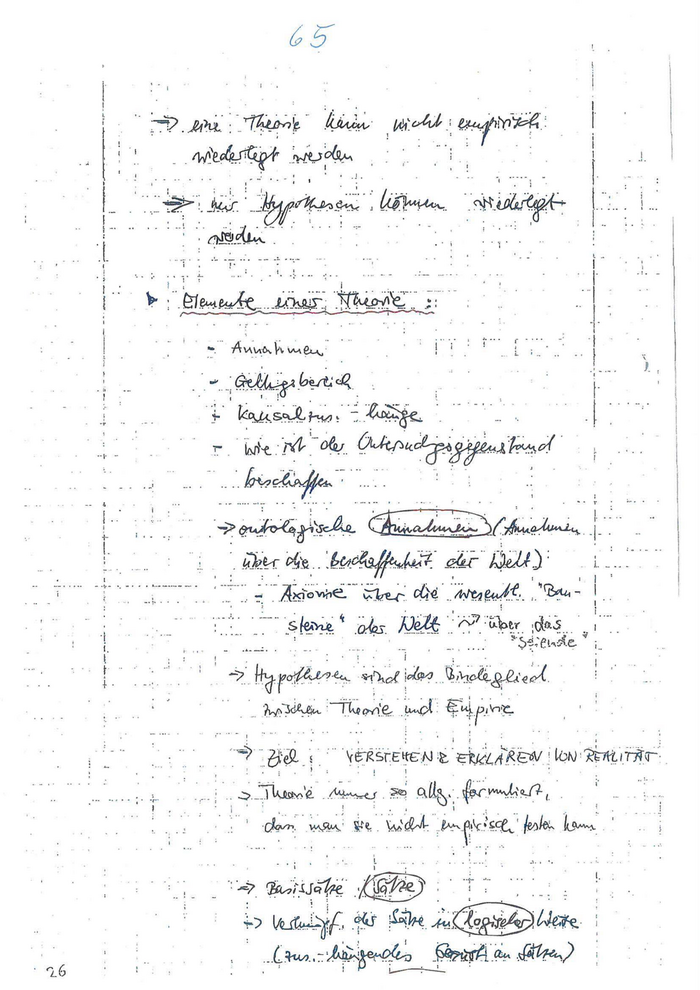 65
→ eine Theorie kann nicht empirisch
wiederlegt werden
⇒ nur Hypothesen können wiederlegt
werden
▸ Elemente einer Theorie :
- Annahmen
- Geltgsbereich
- Kausalzus. - hänge
- wie ist der Untersuchgsgegenstand
beschaffen
→ ontologische Annahmen (Annahmen
über die Beschaffenheit der Welt)
- Axiome über die wesentl. "Bau-
steine" der Welt ~> über das
"Seiende"
→ Hypothesen sind das Bindeglied
zwischen Theorie und Empirie
→ Ziel : VERSTEHEN & ERKLÄREN VON REALITÄT
→ Theorie immer so allg. formuliert,
dass man sie nicht empirisch testen kann
→ Basissätze (Sätze)
→ Verknüpf. der Sätze in logischer Weise
(zus.-hängendes an Sätzen)
26